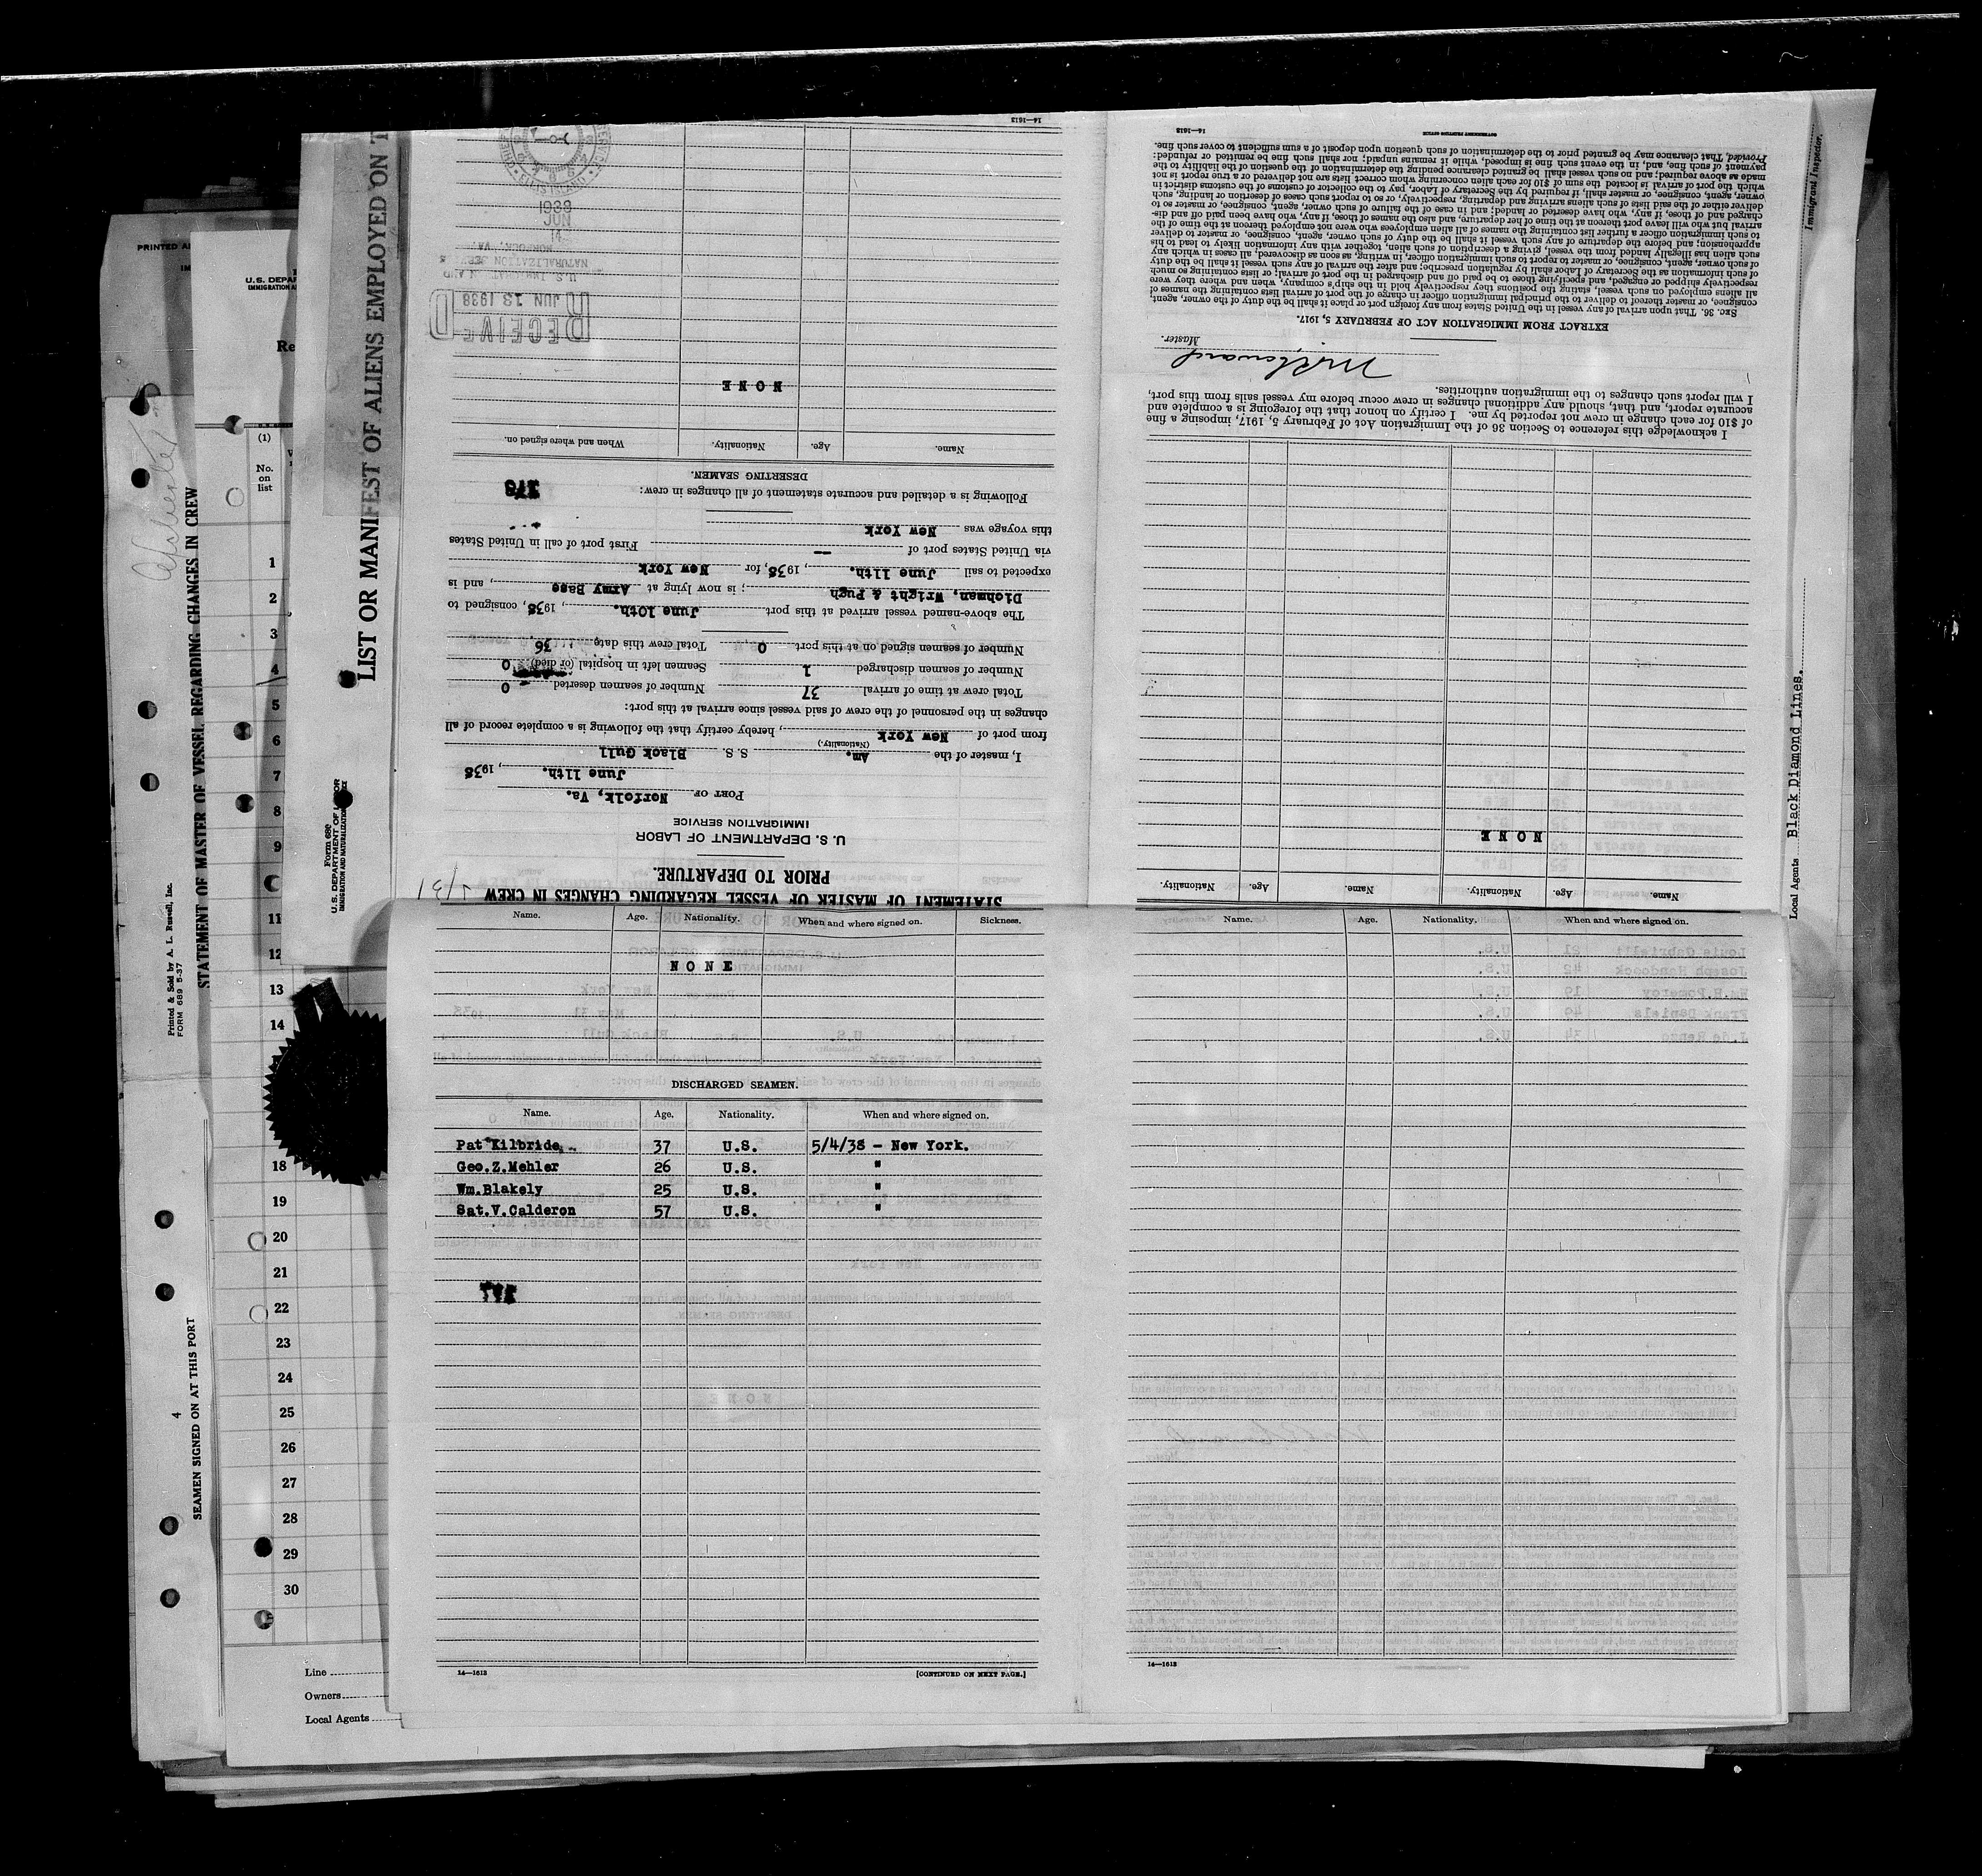 STATEMENT OF MASTER OF VESSEL REGARDING CHANGES IN CREW
PRIOR TO DEPARTURE.
U. S. DEPARTMENT OF LABOR
IMMIGRATION SERVICE
PORT OF Norfolk, Va.
June 11th. , 1938
I, master of the Am. S. S. Black Gull
(Nationality.)
from port of New York , hereby certify that the following is a complete record of all
changes in the personnel of the crew of said vessel since arrival at this port:
Total crew at time of arrival 37 Number of seamen deserted 0
Number of seamen discharged 1 Seamen left in hospital (or died) 0
Number of seamen signed on at this port 0 Total crew this date 36
The above-named vessel arrived at this port June 10th. , 1938, consigned to
Dichman, Wright & Pugh ; is now lying at Army Base , and is
expected to sail June 11th. , 1938, for New York
via United States port of — First port of call in United States
this voyage was New York
Following is a detailed and accurate statement of all changes in crew:
DESERTING SEAMEN.
Name. Age. Nationality. When and where signed on.
NONE
RECEIVED
JUN 13 1938
U. S. IMMIGRATION AND
NATURALIZATION
14
JUN
1938
14—1613
Name. Age. Nationality. Name. Age. Nationality.
NONE
I acknowledge this reference to Section 36 of the Immigration Act of February 5, 1917, imposing a fine
of $10 for each change in crew not reported by me. I certify on honor that the foregoing is a complete and
accurate report, and that, should any additional changes in crew occur before my vessel sails from this port,
I will report such changes to the immigration authorities.
Master.
EXTRACT FROM IMMIGRATION ACT OF FEBRUARY 5, 1917.
SEC. 36. That upon arrival of any vessel in the United States from any foreign port or place it shall be the duty of the owner, agent,
consignee, or master thereof to deliver to the principal immigration officer in charge of the port of arrival lists containing the names of
all aliens employed on such vessel, stating the positions they respectively hold in the ship's company, when and where they were
respectively shipped or engaged, and specifying those to be paid off and discharged in the port of arrival; or lists containing so much
of such information as the Secretary of Labor shall by regulation prescribe; and after the arrival of any such vessel it shall be the duty
of such owner, agent, consignee, or master to report to such immigration officer, in writing, as soon as discovered, all cases in which any
such alien has illegally landed from the vessel, giving a description of such alien, together with any information likely to lead to his
apprehension; and before the departure of any such vessel it shall be the duty of such owner, agent, consignee, or master to deliver
to such immigration officer a further list containing the names of all alien employees who were not employed thereon at the time of the
arrival but who will leave port thereon at the time of her departure, and also the names of those, if any, who have been paid off and dis-
charged and of those, if any, who have deserted or landed; and in case of the failure of such owner, agent, consignee, or master so to
deliver either of the said lists of such aliens arriving and departing, respectively, or so to report such cases of desertion or landing, such
owner, agent, consignee, or master shall, if required by the Secretary of Labor, pay to the collector of customs of the customs district in
which the port of arrival is located the sum of $10 for each alien concerning whom correct lists are not delivered or a true report is not
made as above required; and no such vessel shall be granted clearance pending the determination of the question of the liability to the
payment of such fine, and, in the event such fine is imposed, while it remains unpaid; nor shall such fine be remitted or refunded:
Provided, That clearance may be granted prior to the determination of such question upon deposit of a sum sufficient to cover such fine.
14—1613
GOVERNMENT PRINTING OFFICE
Name. Age. Nationality. When and where signed on. Sickness.
NONE
DISCHARGED SEAMEN.
Name. Age. Nationality. When and where signed on.
Pat Kilbride 37 U.S. 5/4/38 — New York.
Geo.Z.Mehler 26 U.S. "
Wm.Blakely 25 U.S. "
Sat.V.Calderon 57 U.S. "
14—1613
[CONTINUED ON NEXT PAGE.]
Name. Age. Nationality. When and where signed on.
14—1613
LIST OR MANIFEST OF ALIENS EMPLOYED ON T
Form 680
U.S. DEPARTMENT OF LABOR
IMMIGRATION AND NATURALIZATION SERVICE
Local Agents Black Diamond Lines.
Immigrant Inspector.
STATEMENT OF MASTER OF VESSEL REGARDING CHANGES IN CREW
Printed & Sold by A. L. Russell, Inc.
FORM 689 5-37
SEAMEN SIGNED ON AT THIS PORT
4
PRINTED A
U.S. DEPAR
IMMIGRATION A
Re
(1)
No.
on
list
1
2
3
4
5
6
7
8
9
11
12
13
14
18
19
20
21
22
23
24
25
26
27
28
29
30
Line
Owners
Local Agents